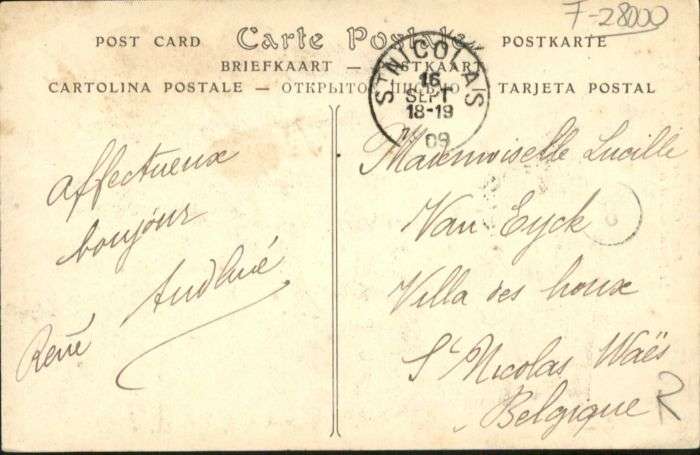 F-28000
Carte Postale
POST CARD
POSTKARTE
BRIEFKAART — POSTKAART
CARTOLINA POSTALE — ОТКРЫТОЕ ПИСЬМО — TARJETA POSTAL
ST NICOLAS
16
SEPT
18-19
09
Affectueux
bonjour
René
Mademoiselle Lucille
Van Eyck
Villa des houx
St Nicolas Waës
Belgique